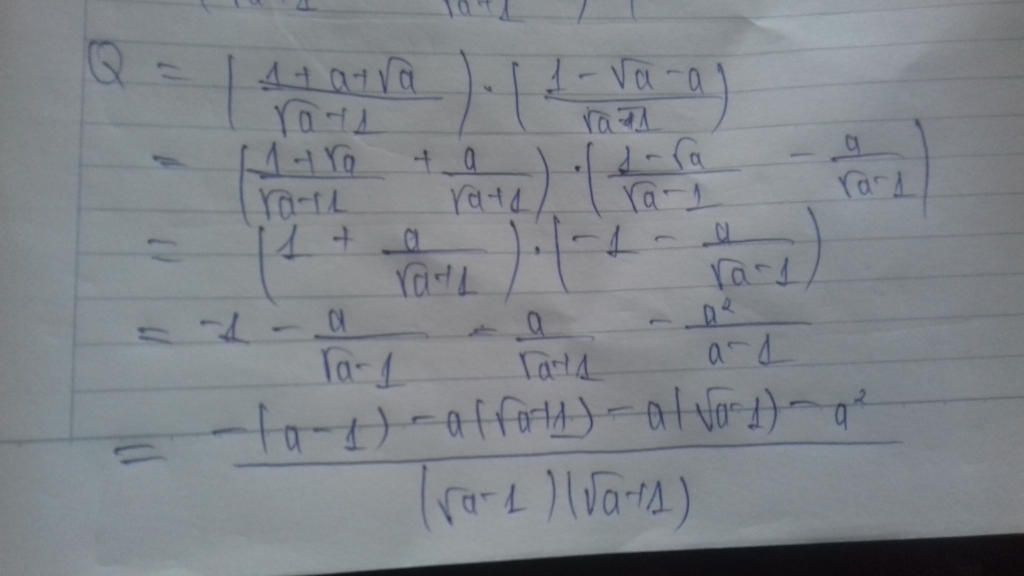 √a+1 )
Q = ( (1+a+√a)/(√a+1) ) · ( (1-√a-a)/(√a-1) )
= ( (1+√a)/(√a+1) + a/(√a+1) ) · ( (1-√a)/(√a-1) - a/(√a-1) )
= ( 1 + a/(√a+1) ) · ( -1 - a/(√a-1) )
= -1 - a/(√a-1) - a/(√a+1) - a²/(a-1)
= (-(a-1) - a(√a+1) - a(√a-1) - a²)/((√a-1)(√a+1))